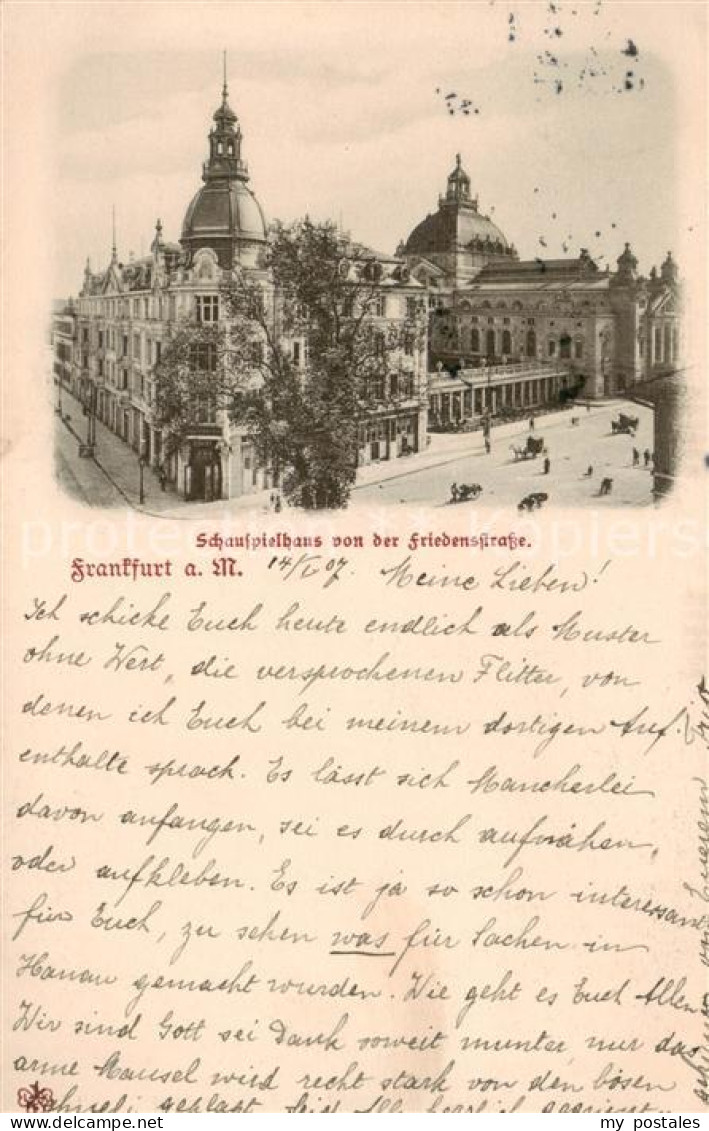 Schauspielhaus von der Friedensstraße.
Frankfurt a. M. 14/I 07. Meine Lieben!
Ich schicke Euch heute endlich als Muster
ohne Wert, die versprochenen Flitter, von
denen ich Euch bei meinem dortigen Auf-
enthalte sprach. Es lässt sich Mancherlei
davon anfangen, sei es durch aufnähen,
oder aufkleben. Es ist ja so schon interessant
für Euch, zu sehen was für Sachen in
Hanau gemacht wurden. Wie geht es Euch Allen
Wir sind Gott sei Dank soweit munter, nur das
arme Mausel wird recht stark von den bösen
geplagt. Seid Alle herzlich gegrüsst
www.my-postales.com
my postales